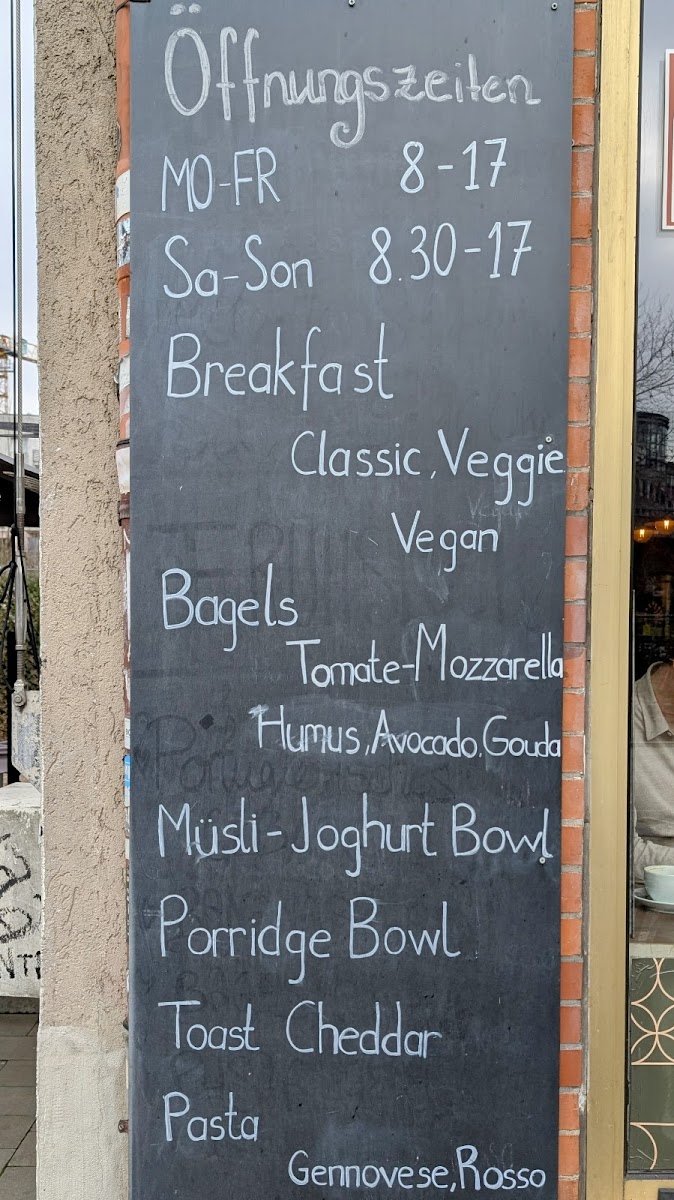 Öffnungszeiten
MO-FR 8-17
Sa-Son 8.30-17
Breakfast
Classic, Veggie
Vegan
Bagels
Tomate-Mozzarella
Humus, Avocado, Gouda
Müsli-Joghurt Bowl
Porridge Bowl
Toast Cheddar
Pasta
Gennovese, Rosso